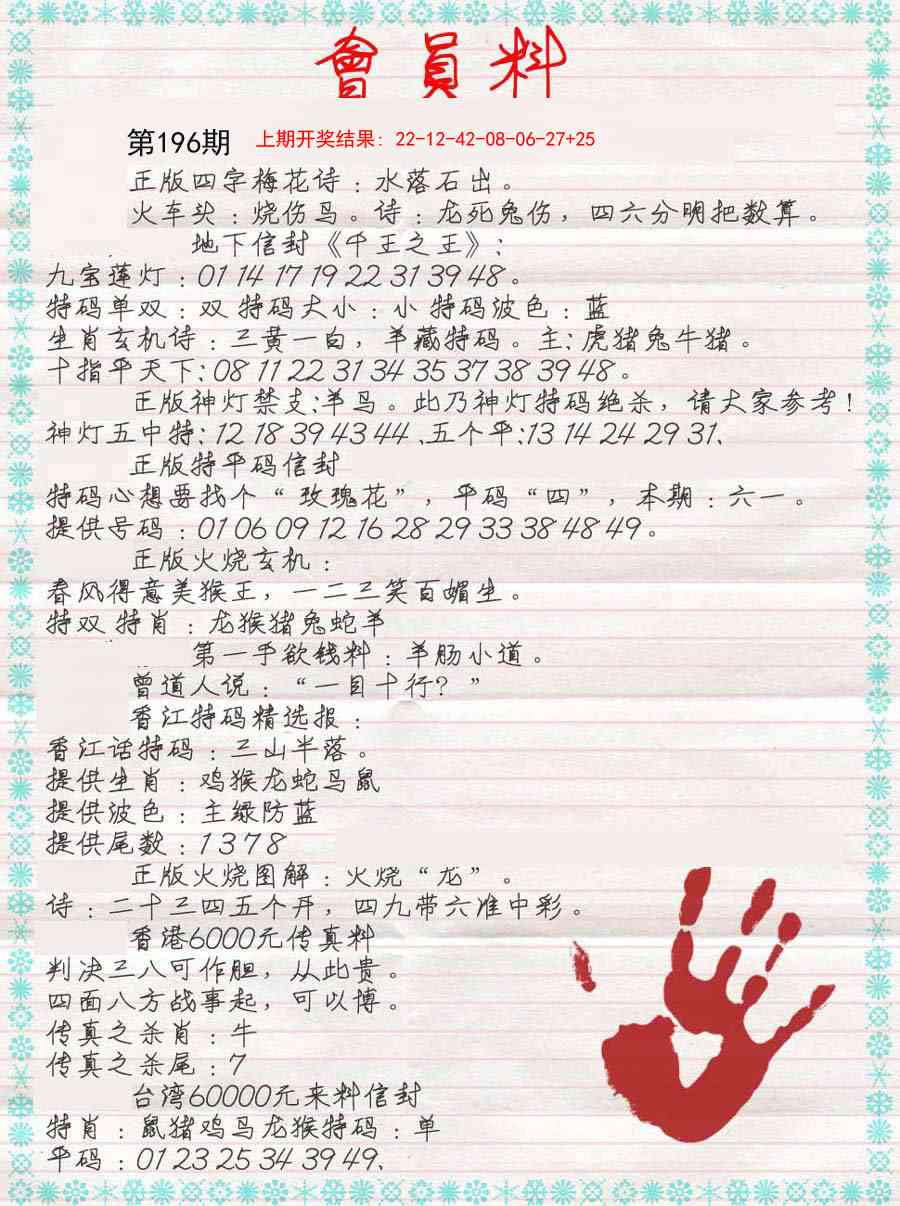 會員料
第196期 上期开奖结果：22-12-42-08-06-27+25
正版四字梅花诗：水落石出。
火车头：烧伤鸟。诗：龙死兔伤，四六分明把数算。
地下信封《千王之王》：
九宝莲灯：01 14 17 19 22 31 39 48。
特码单双：双 特码大小：小 特码波色：蓝
生肖玄机诗：三黄一白，羊藏特码。主：虎猪兔牛猪。
十指平天下：08 11 22 31 34 35 37 38 39 48。
正版神灯禁支：羊鸟。此乃神灯特码绝杀，请大家参考！
神灯五中特：12 18 39 43 44、五个平：13 14 24 29 31、
正版特平码信封
特码心想要找个“玫瑰花”，平码“四”，本期：六一。
提供号码：01 06 09 12 16 28 29 33 38 48 49。
正版火烧玄机：
春风得意美猴王，一二三笑百媚生。
特双 特肖：龙猴猪兔蛇羊
第一手欲钱料：羊肠小道。
曾道人说：“一目十行？”
香江特码精选报：
香江话特码：三山半落。
提供生肖：鸡猴龙蛇马鼠
提供波色：主绿防蓝
提供尾数：1 3 7 8
正版火烧图解：火烧“龙”。
诗：二十三四五个开，四九带六准中彩。
香港6000元传真料
判决三八可作胆，从此贵。
四面八方战事起，可以博。
传真之杀肖：牛
传真之杀尾：7
台湾60000元来料信封
特肖：鼠猪鸡鸟龙猴特码：单
平码：01 23 25 34 39 49、